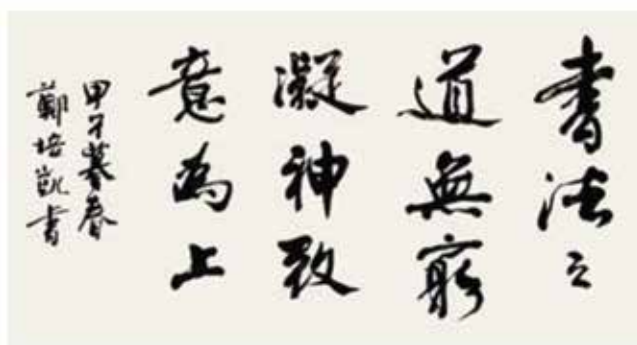 書法之
道無窮
凝神致
意為上
甲子暮春
鄭培凱書